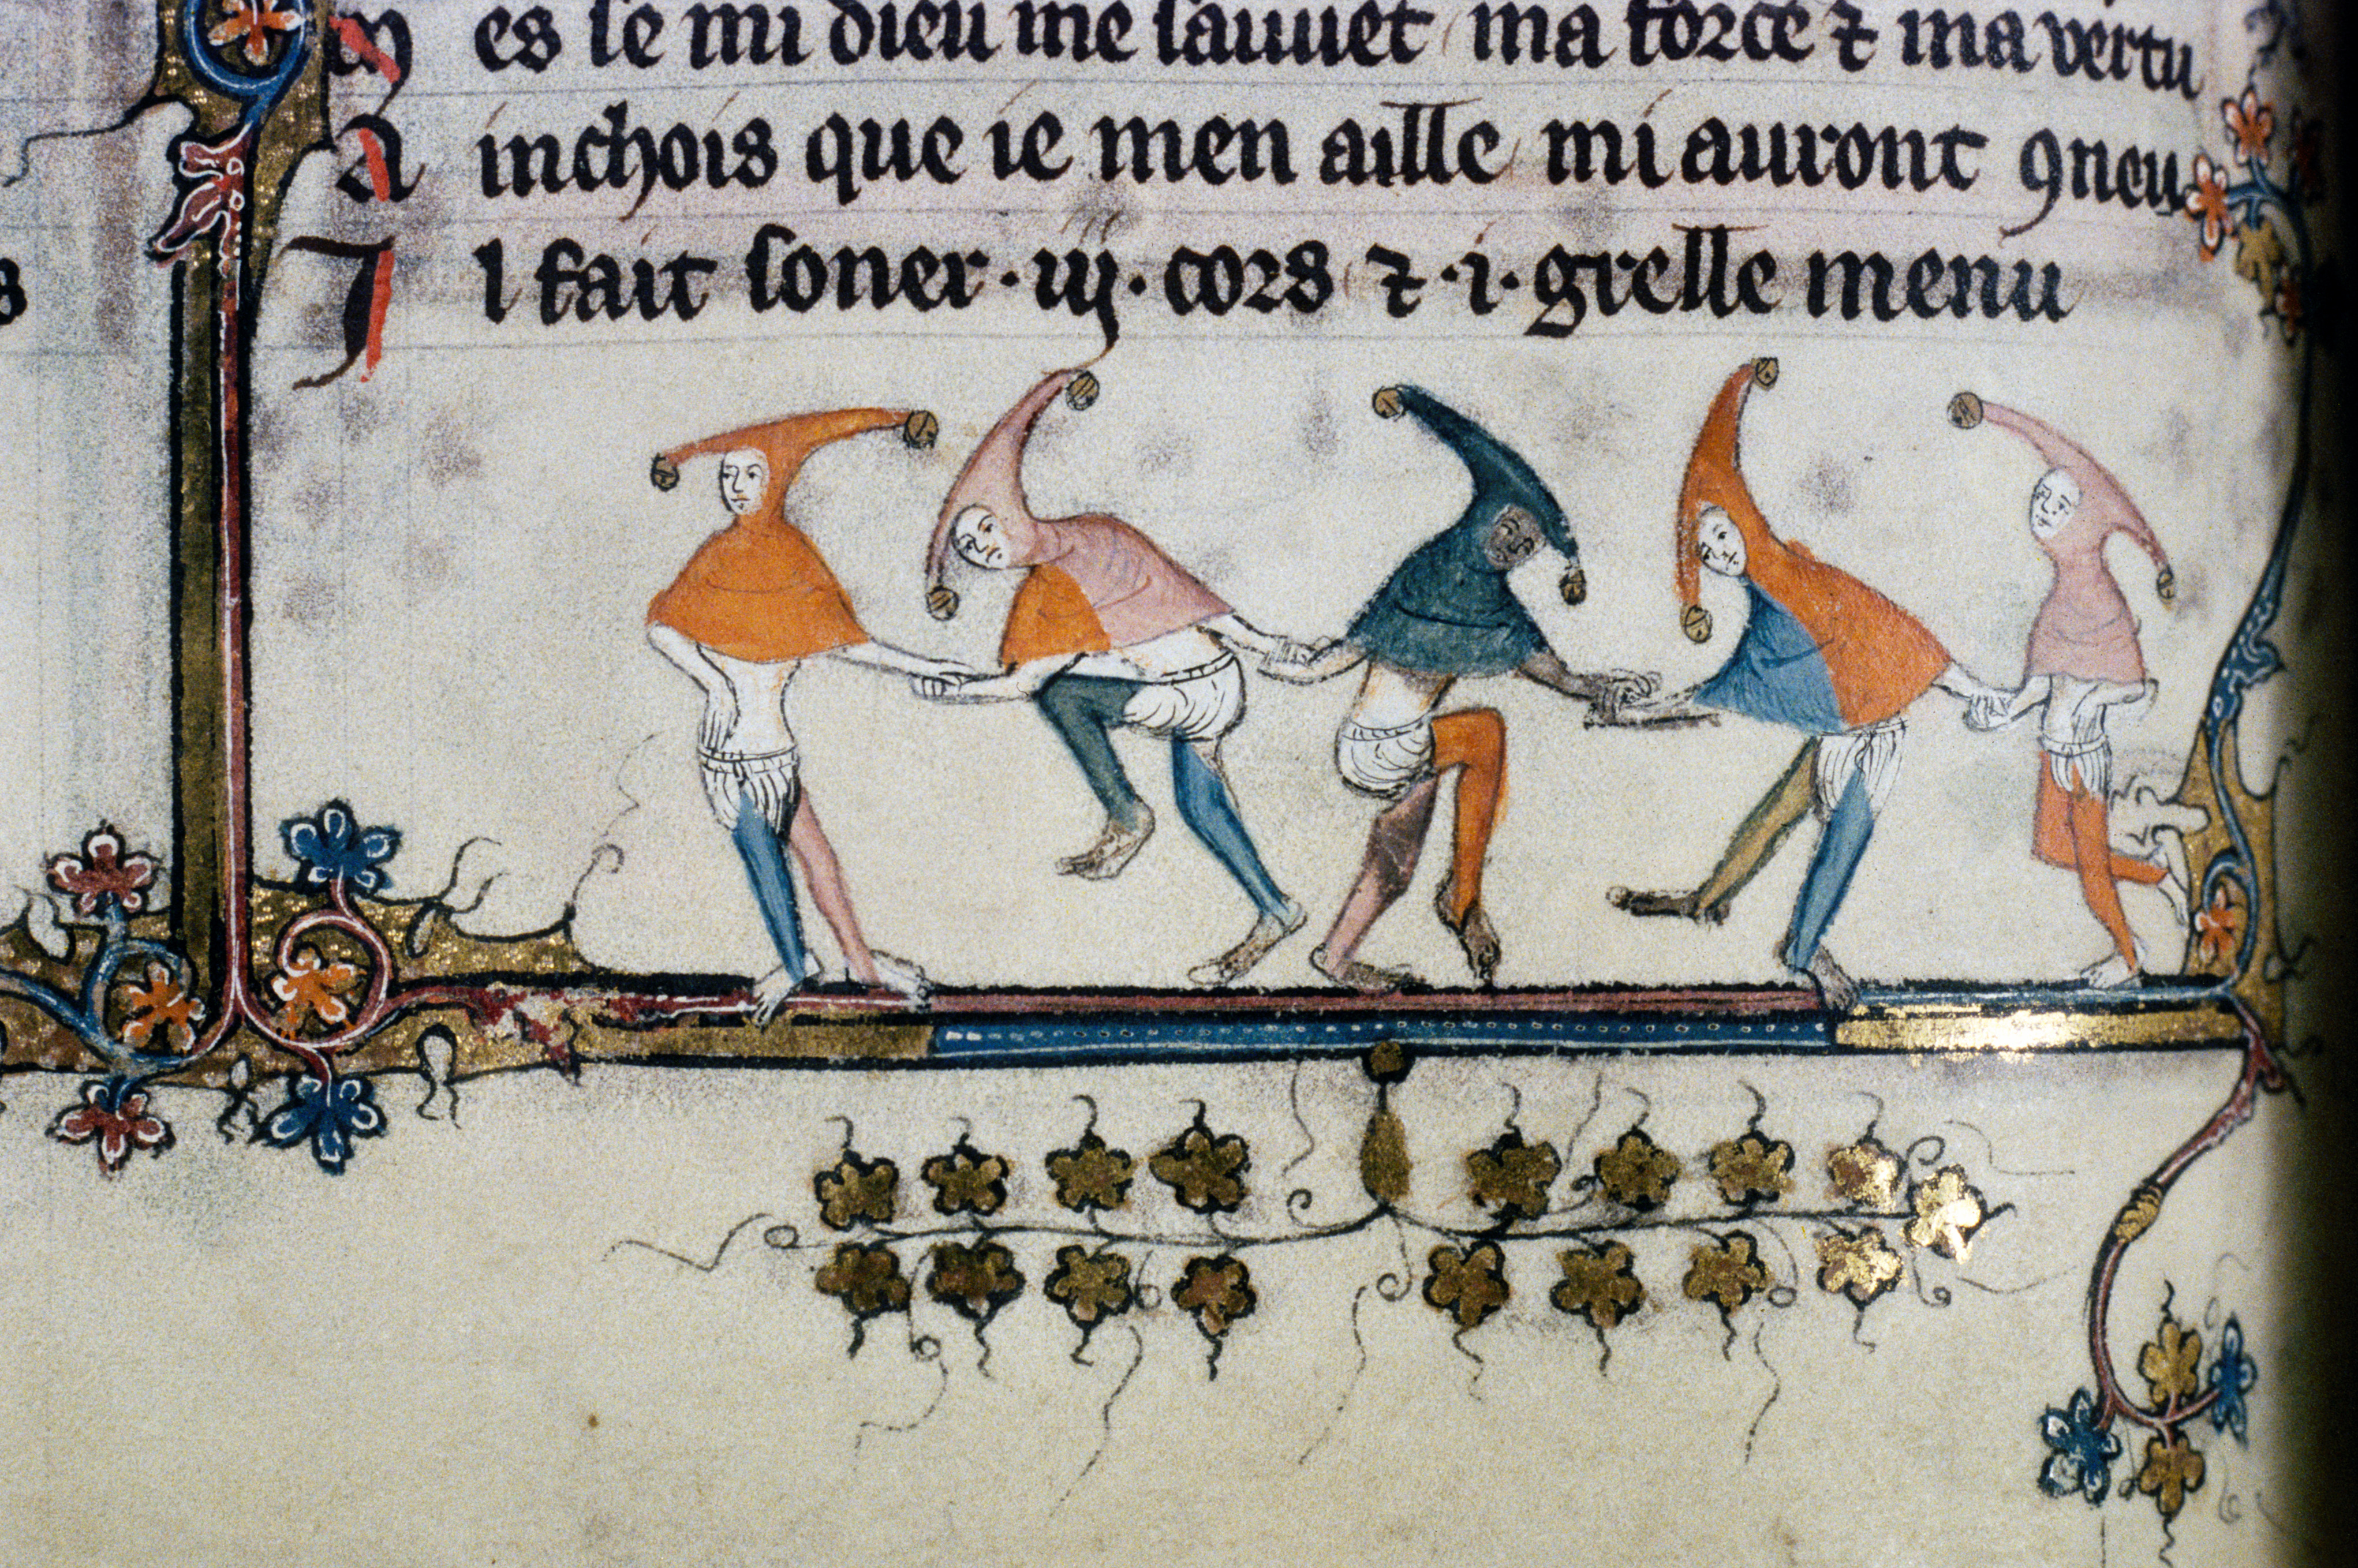 M es se mi dieu me sauuet ma force ⁊ ma vertu
A inchois que ie men aille mi auront ꝯneu
I l fait soner .iij. cors ⁊ .i. grelle menu
s